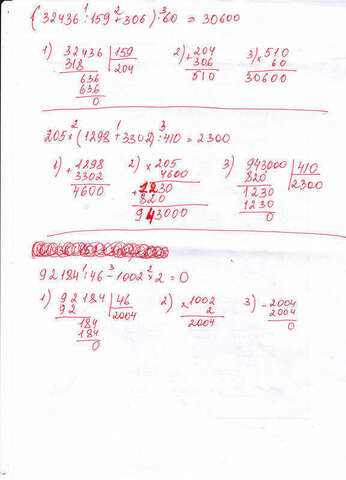 (32436 : 159 + 306) · 60 = 30600
1 2 3
1) 32436 | 159
318 | 204
636
636
0
2) + 204
306
510
3) × 510
60
30600
205 × (1298 + 3302) : 410 = 2300
2 1 3
1) + 1298
3302
4600
2) × 205
4600
+ 1230
820
943000
3) 943000 | 410
820 | 2300
1230
1230
0
92184 : 46 - 1002 × 2 = 0
1 3 2
1) 92184 | 46
92 | 2004
184
184
0
2) × 1002
2
2004
3) - 2004
2004
0